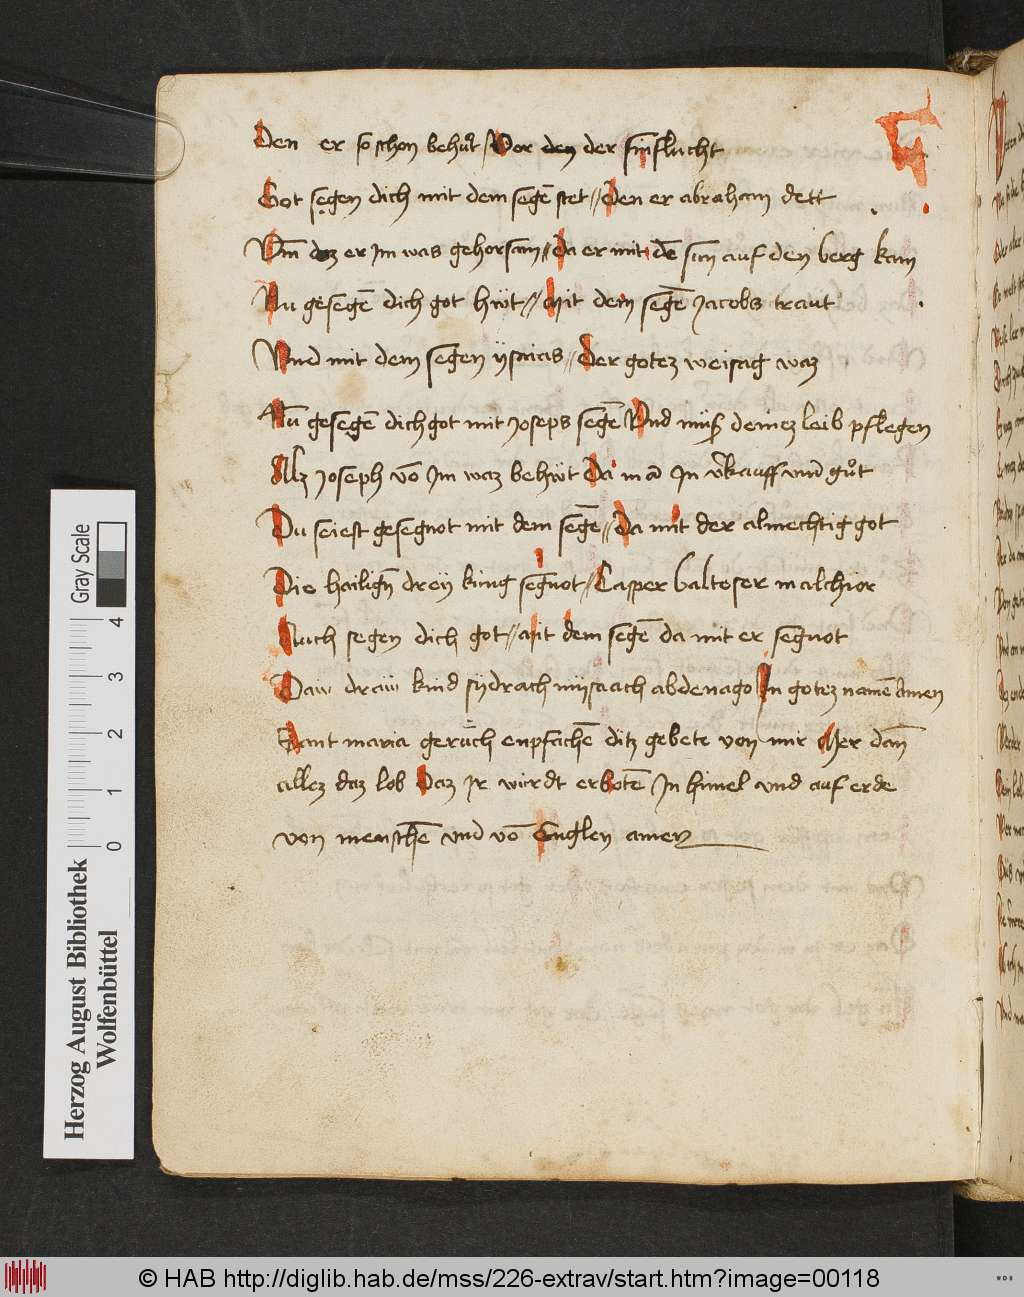 Den er so schon behut / Vor den der sinflucht
Got segen dich mit dem segē stet // Den er abraham dett
Vm̄ daz er Im was gehorsam // Da er mit dē sun auf den berg kam
Nu gesegē dich got hiut // Mit dem segē Jacobs traut
Vnd mit dem segen ysaias // Der gotez weisag waz
Nu gesegē dich got mit Joseps segē Vnd muß deinez leib pflegen
Alz Joseph vō Im waz behut Da mā In vkauff vm̄ gut
Du seiest gesegnot mit dem segē // Da mit der almechtig got
Die hailigē dreÿ king segnot // Casper baltoser malchior
Auch segen dich got // Mit dem segē da mit er segnot
Daw draiu kind sydrach mysaach abdenago In gotez namē Amen
Sant maria geruch enpfachē ditz gebete von mir Mer dan̄
allez daz lob Daz Ir wirdt erbotē In himel vnd auf erde
von menschē vnd vō Englen amen
Herzog August Bibliothek
Wolfenbüttel
Gray Scale
0 1 2 3 4
© HAB http://diglib.hab.de/mss/226-extrav/start.htm?image=00118